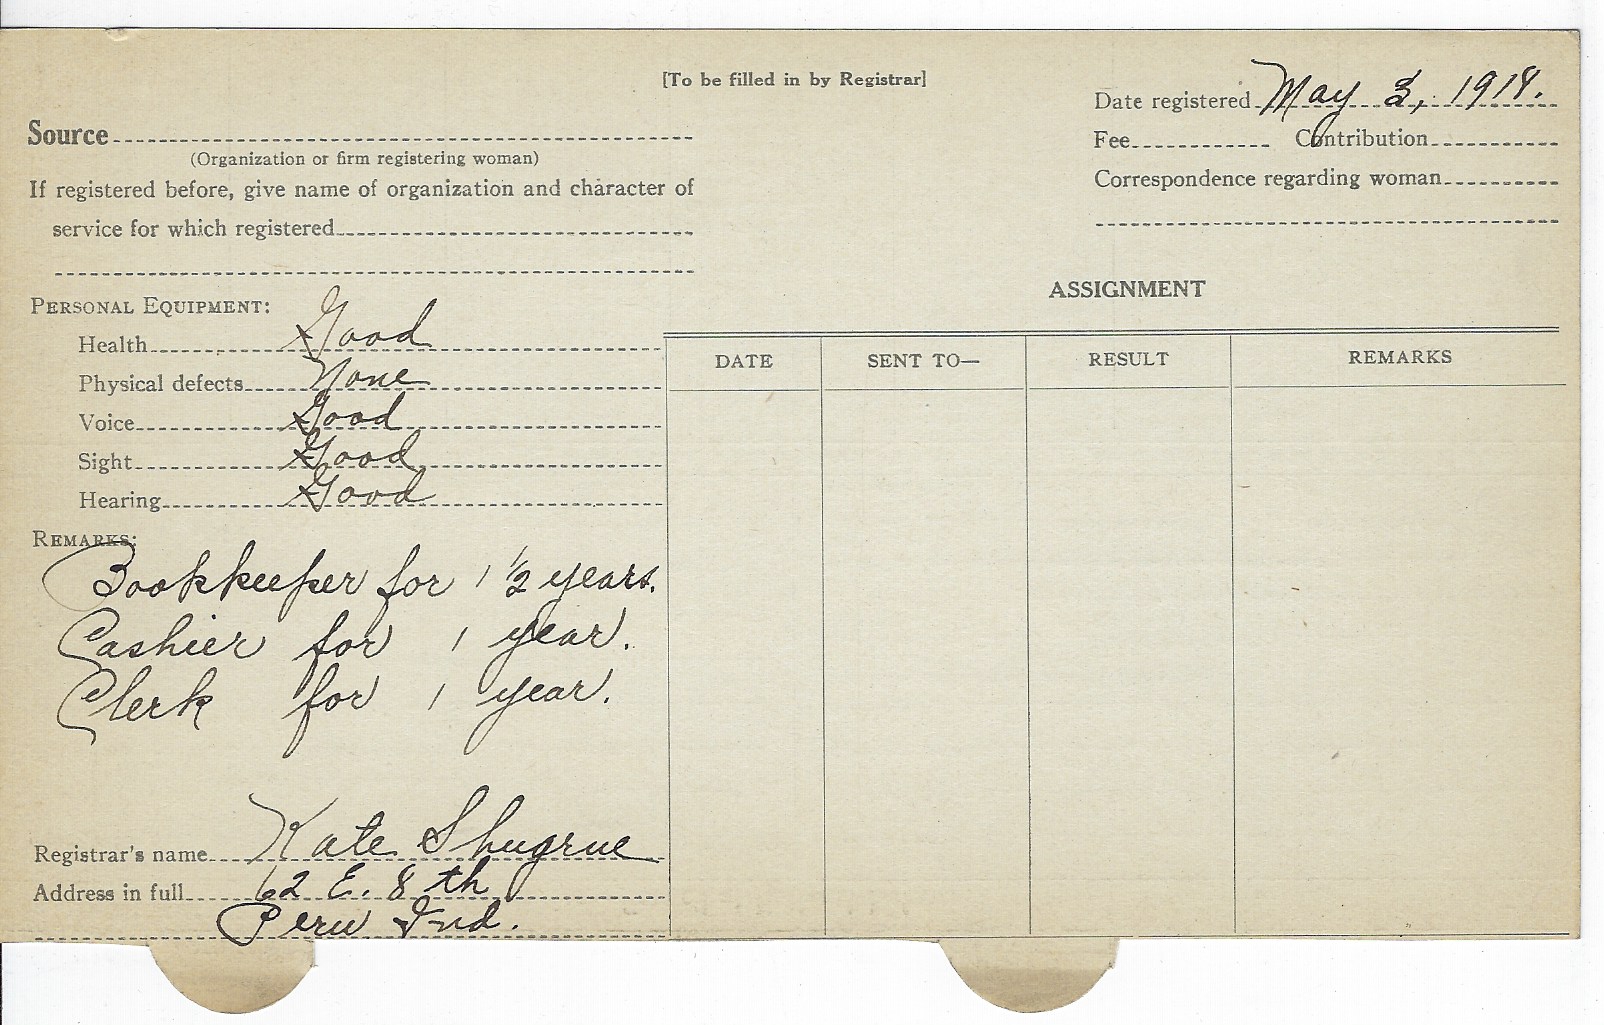 [To be filled in by Registrar]
Date registered May 3, 1918.
Source
(Organization or firm registering woman)
Fee Contribution
If registered before, give name of organization and character of
Correspondence regarding woman
service for which registered
ASSIGNMENT
PERSONAL EQUIPMENT:
Health Good
DATE SENT TO— RESULT REMARKS
Physical defects None
Voice Good
Sight Good
Hearing Good
REMARKS:
Bookkeeper for 1 1/2 years.
Cashier for 1 year.
Clerk for 1 year.
Registrar's name Kate Shugrue
Address in full 62 E. 8th
Peru Ind.